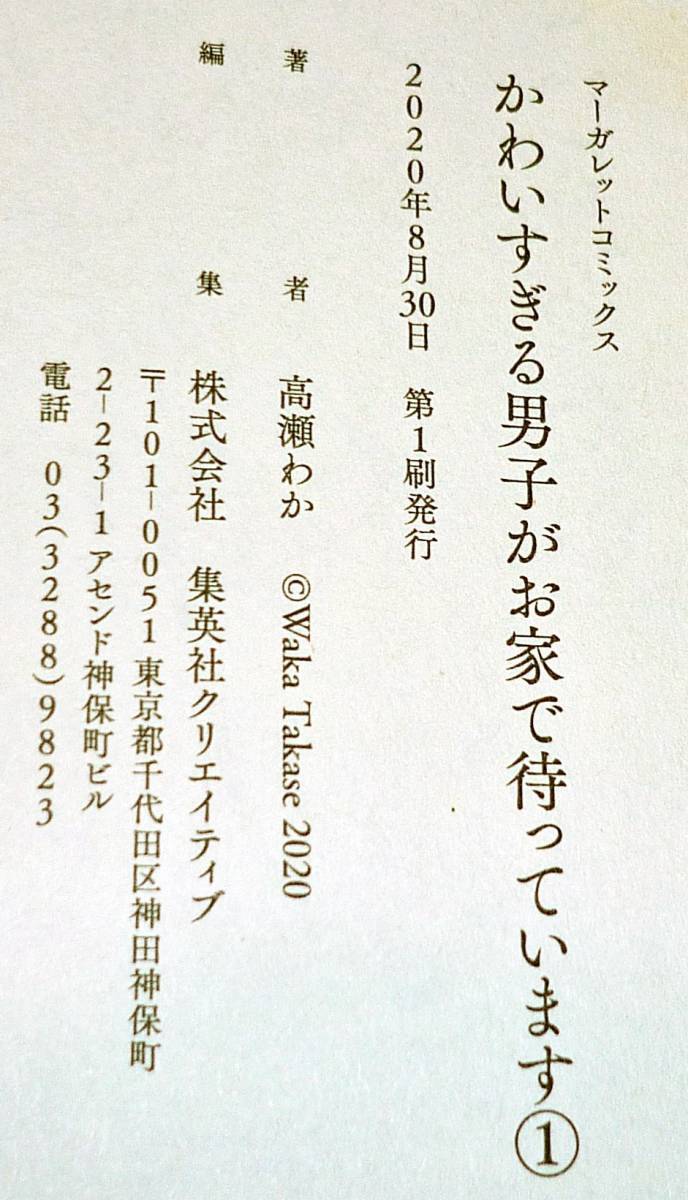 マーガレットコミックス
かわいすぎる男子がお家で待っています①
2020年8月30日 第1刷発行
著者 高瀬わか ©Waka Takase 2020
編集 株式会社 集英社クリエイティブ
〒101-0051 東京都千代田区神田神保町
2-23-1 アセンド神保町ビル
電話 03(3288)9823